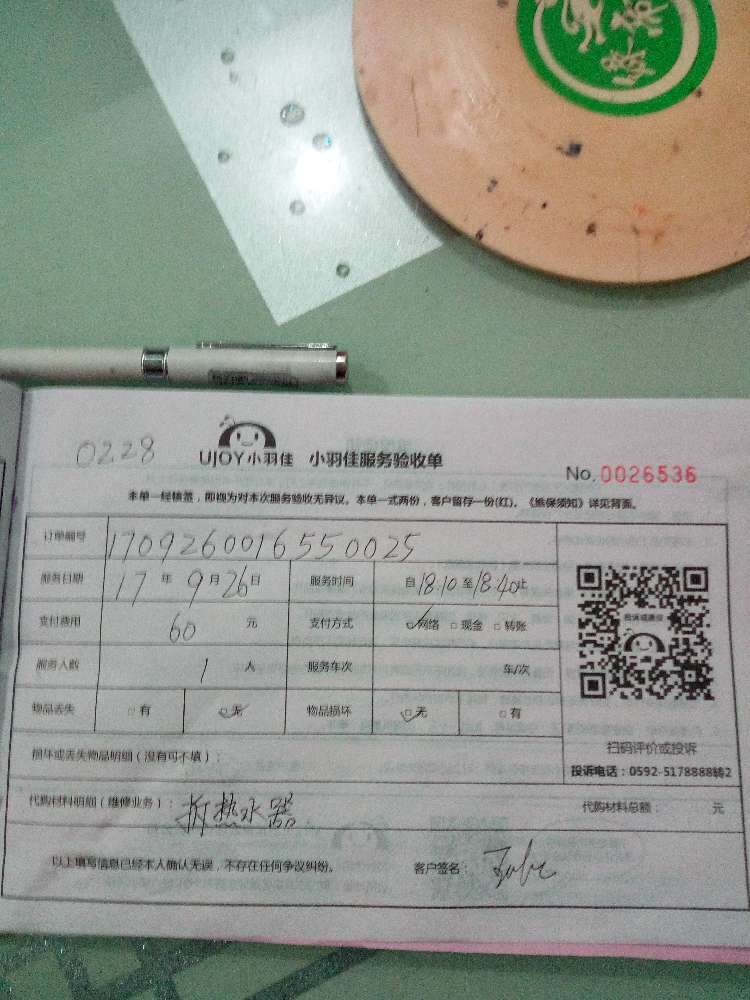 0228
UJOY小羽佳 小羽佳服务验收单
No.0026536
本单一经核签,即视为对本次服务验收无异议。本单一式两份,客户留存一份(红)。《维保须知》详见背面。
订单编号 1709260016550025
服务日期 17年9月26日 服务时间 自18:10至18:40止
支付费用 60元 支付方式 ☑网络 □现金 □转账
服务人数 1人 服务车次 车/次
物品丢失 □有 ☑无 物品损坏 ☑无 □有
扫码评价或投诉
投诉电话:0592-5178888转2
损坏或丢失物品明细(没有可不填):
代购材料明细(维修业务): 拆热水器 代购材料总额: 元
以上填写信息已经本人确认无误,不存在任何争议纠纷。 客户签名: